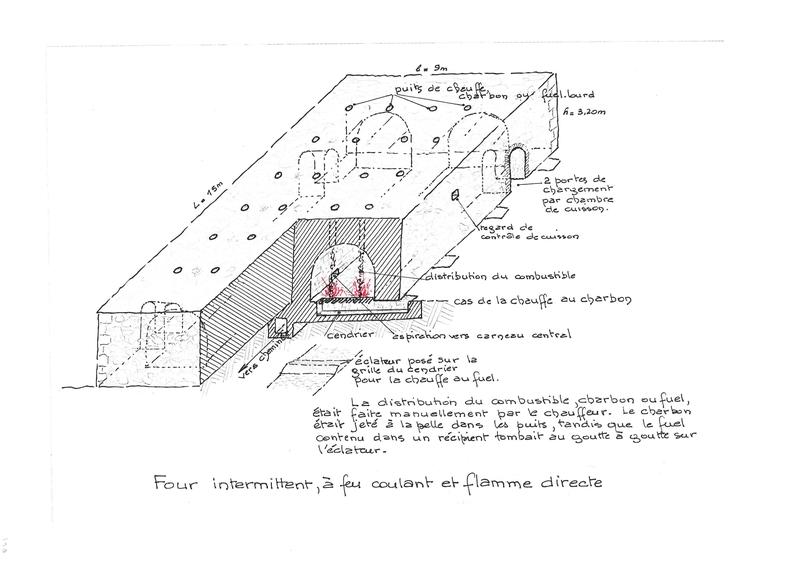 l = 9m
puits de chauffe,
charbon ou fuel.lourd
h = 3,20m
L = 15m
2 portes de
chargement
par chambre
de cuisson.
regard de
contrôle de cuisson
distribution du combustible
cas de la chauffe au charbon
cendrier
aspiration vers carneau central
vers cheminée
éclateur posé sur la
grille du cendrier
pour la chauffe au fuel.
La distribution du combustible, charbon ou fuel,
était faite manuellement par le chauffeur. Le charbon
était jeté à la pelle dans les puits, tandis que le fuel
contenu dans un récipient tombait au goutte à goutte sur
l'éclateur.
Four intermittent, à feu coulant et flamme directe